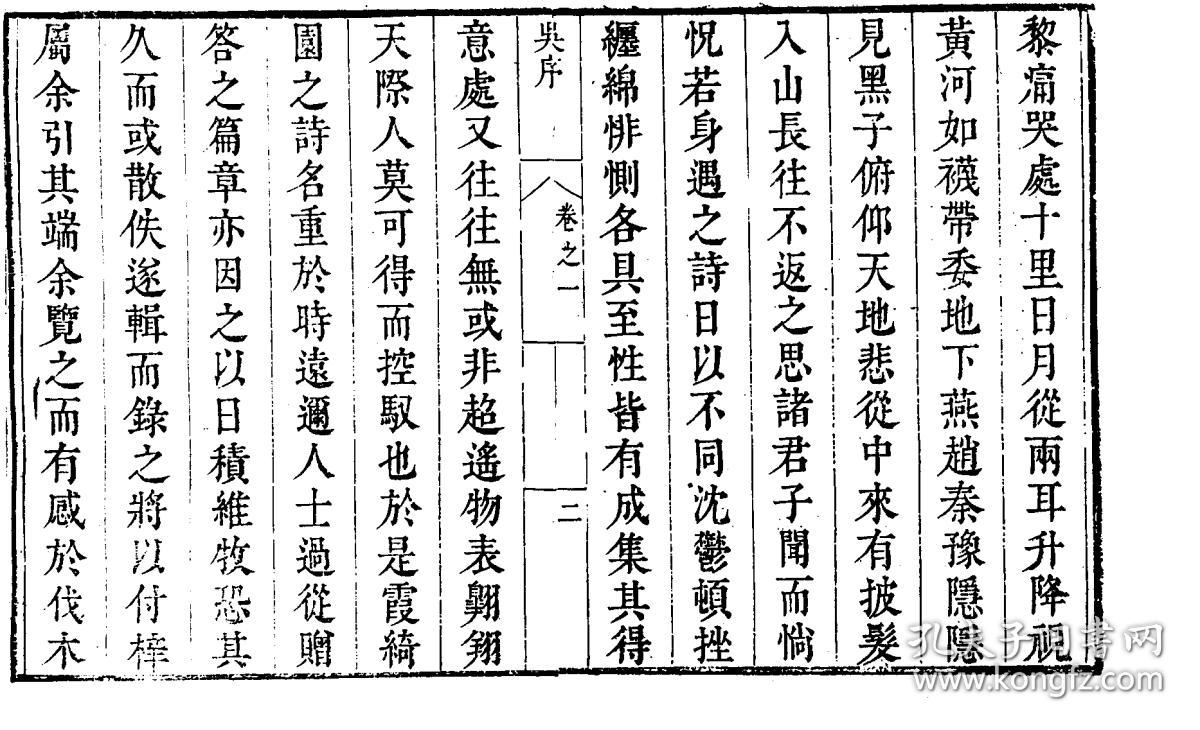 黎痛哭處十里日月從兩耳升降視
黃河如襪帶委地下燕趙秦豫隱隱
見黑子俯仰天地悲從中來有披髮
入山長往不返之思諸君子聞而惝
怳若身遇之詩日以不同沈鬱頓挫
纏綿悱惻各具至性皆有成集其得
吳序
卷之一
二
意處又往往無或非超遙物表翺翔
天際人莫可得而控馭也於是霞綺
園之詩名重於時遠邇人士過從贈
答之篇章亦因之以日積維牧恐其
久而或散佚遂輯而錄之將以付梓
屬余引其端余覽之而有感於伐木
孔夫子旧书网
www.kongfz.com